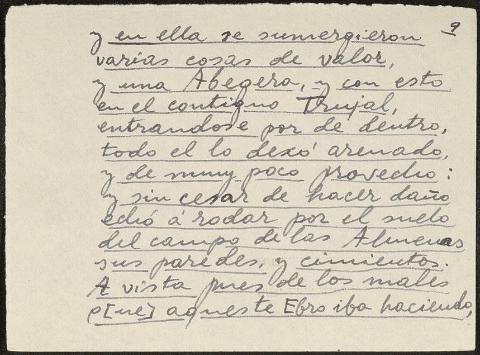 9
y en ella se sumergieron
varias cosas de valor,
y una Abegera, y con esto
en el contiguo Trujal,
entrandose por de dentro,
todo el lo dexó arenado,
y de muy poco provecho:
y sin cesar de hacer daño
echó á rodar por el suelo
del campo de las Almenas
sus paredes, y cimientos.
A vista pues de los males
q[ue] aqueste Ebro iba haciendo,